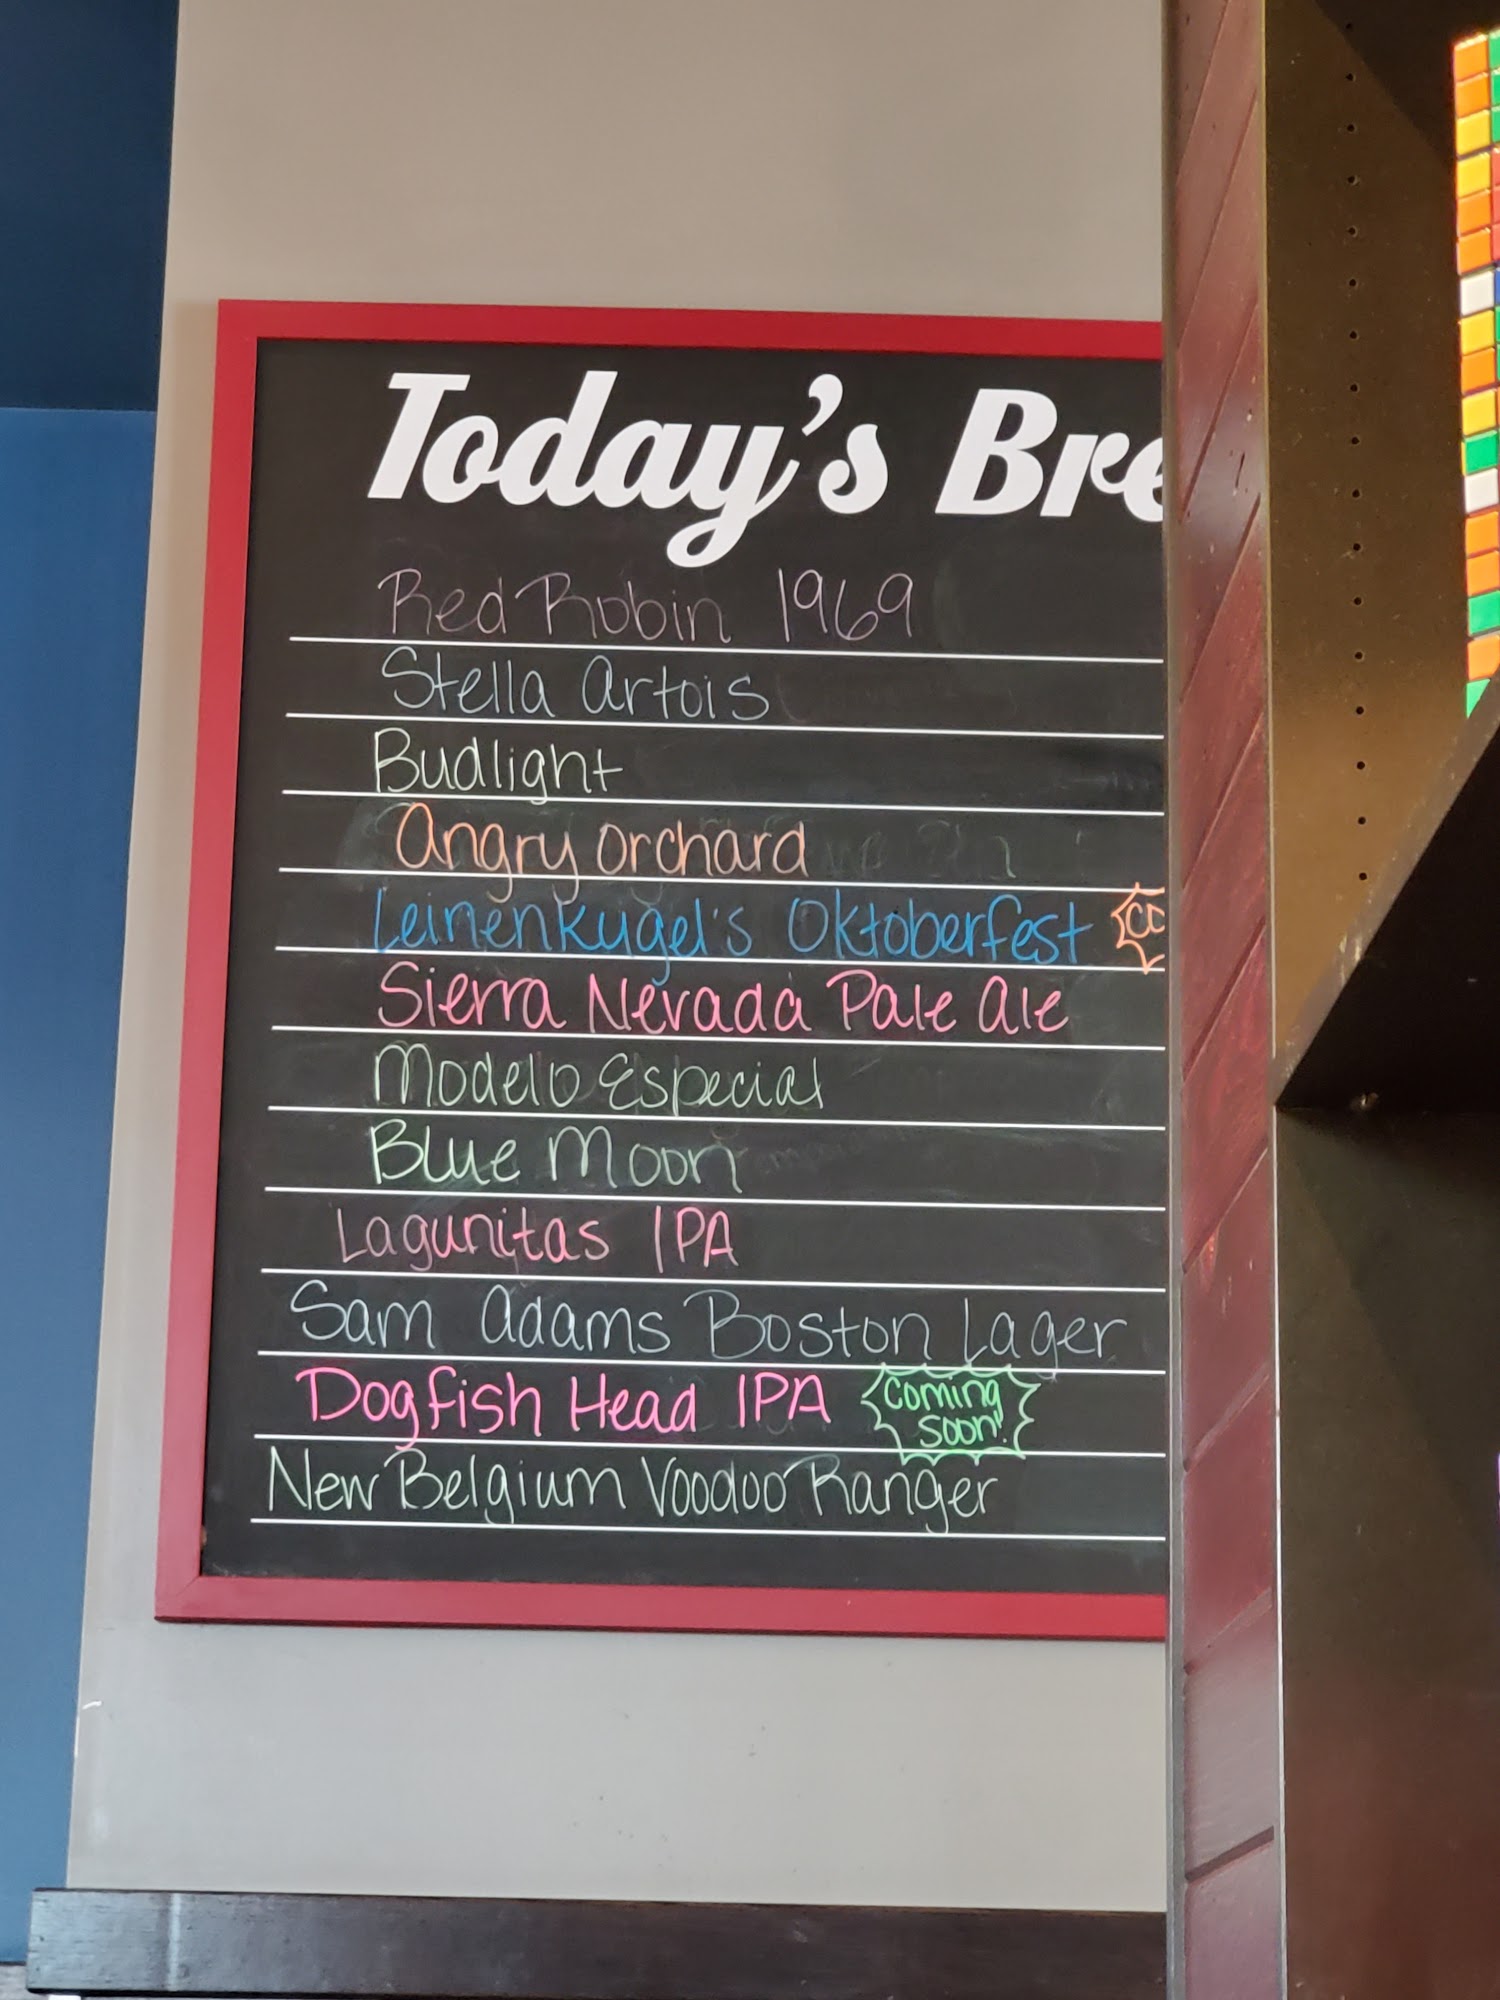 Today's Bre
Red Robin 1969
Stella Artois
Budlight
Angry orchard
Leinenkugel's Oktoberfest CO
Sierra Nevada Pale Ale
Modelo Especial
Blue Moon
Lagunitas IPA
Sam Adams Boston Lager
Dogfish Head IPA Coming
Soon!
New Belgium Voodoo Ranger